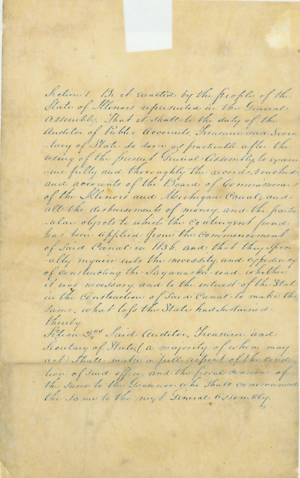 Section 1. Be it enacted by the people of the
State of Illinois represented in the General
Assembly, That it shall be the duty of the
Auditor of Public Accounts, Treasurer and Secre
tary of State so soon as practicable after the
rising of the present General Assembly to exam
ine fully and thoroughly the accounts, vouchers
and accounts of the Board of Commissioners
of the Illinois and Michigan Canal, and
all the disbursements of money and the partic
ular objects to which the contingent fund
has been applied from the commencement
of said Canal in 1836, and that they speci
ally inquire into the necessity and expediency
of constructing the Saganaskee road, whether
it was necessary and to the interest of the State
in the construction of said Canal to make the
same, what loss the State has sustained
thereby
Section 2nd Said Auditor, Treasurer and
Secretary of State (a majority of whom may
act) shall make a full report of the condi
tion of said office, and the fiscal concerns of
the same to the Governor who shall communicate
the same to the next General Assembly.